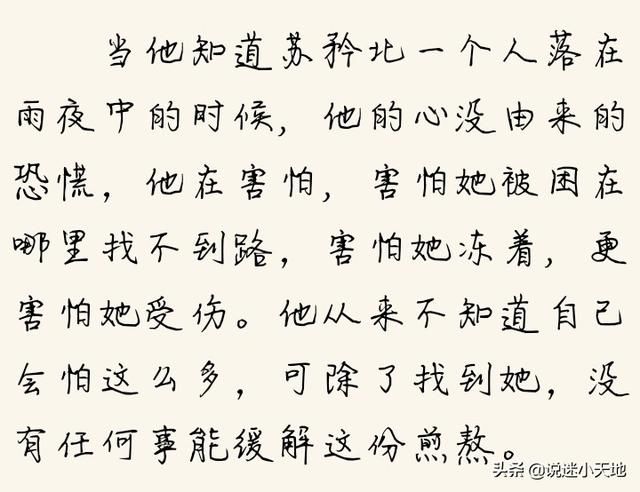 当他知道苏矜北一个人落在
雨夜中的时候，他的心没由来的
恐慌，他在害怕，害怕她被困在
哪里找不到路，害怕她冻着，更
害怕她受伤。他从来不知道自己
会怕这么多，可除了找到她，没
有任何事能缓解这份煎熬。
头条 @说迷小天地